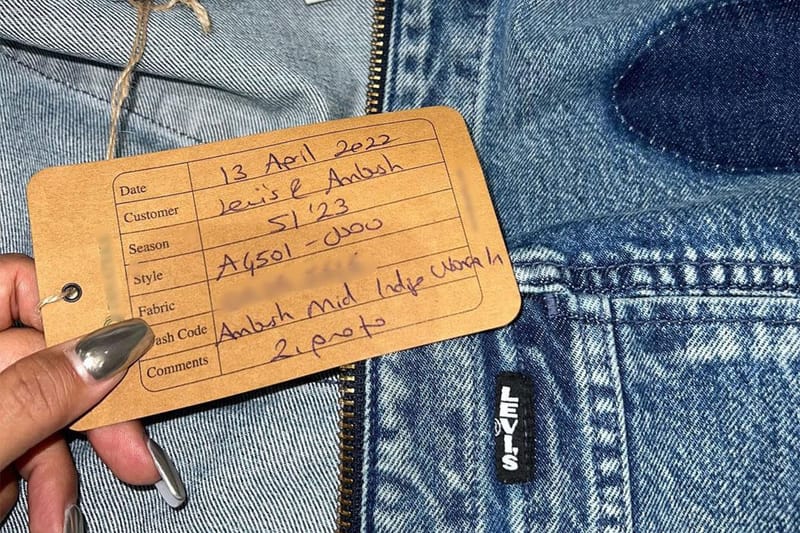 Date 13 April 2022
Customer Levi's & Ambush
Season S1 '23
Style A4501-0000
Fabric
ash Code Ambush Mid Indigo Worn In
Comments 2. proto
LEVI'S